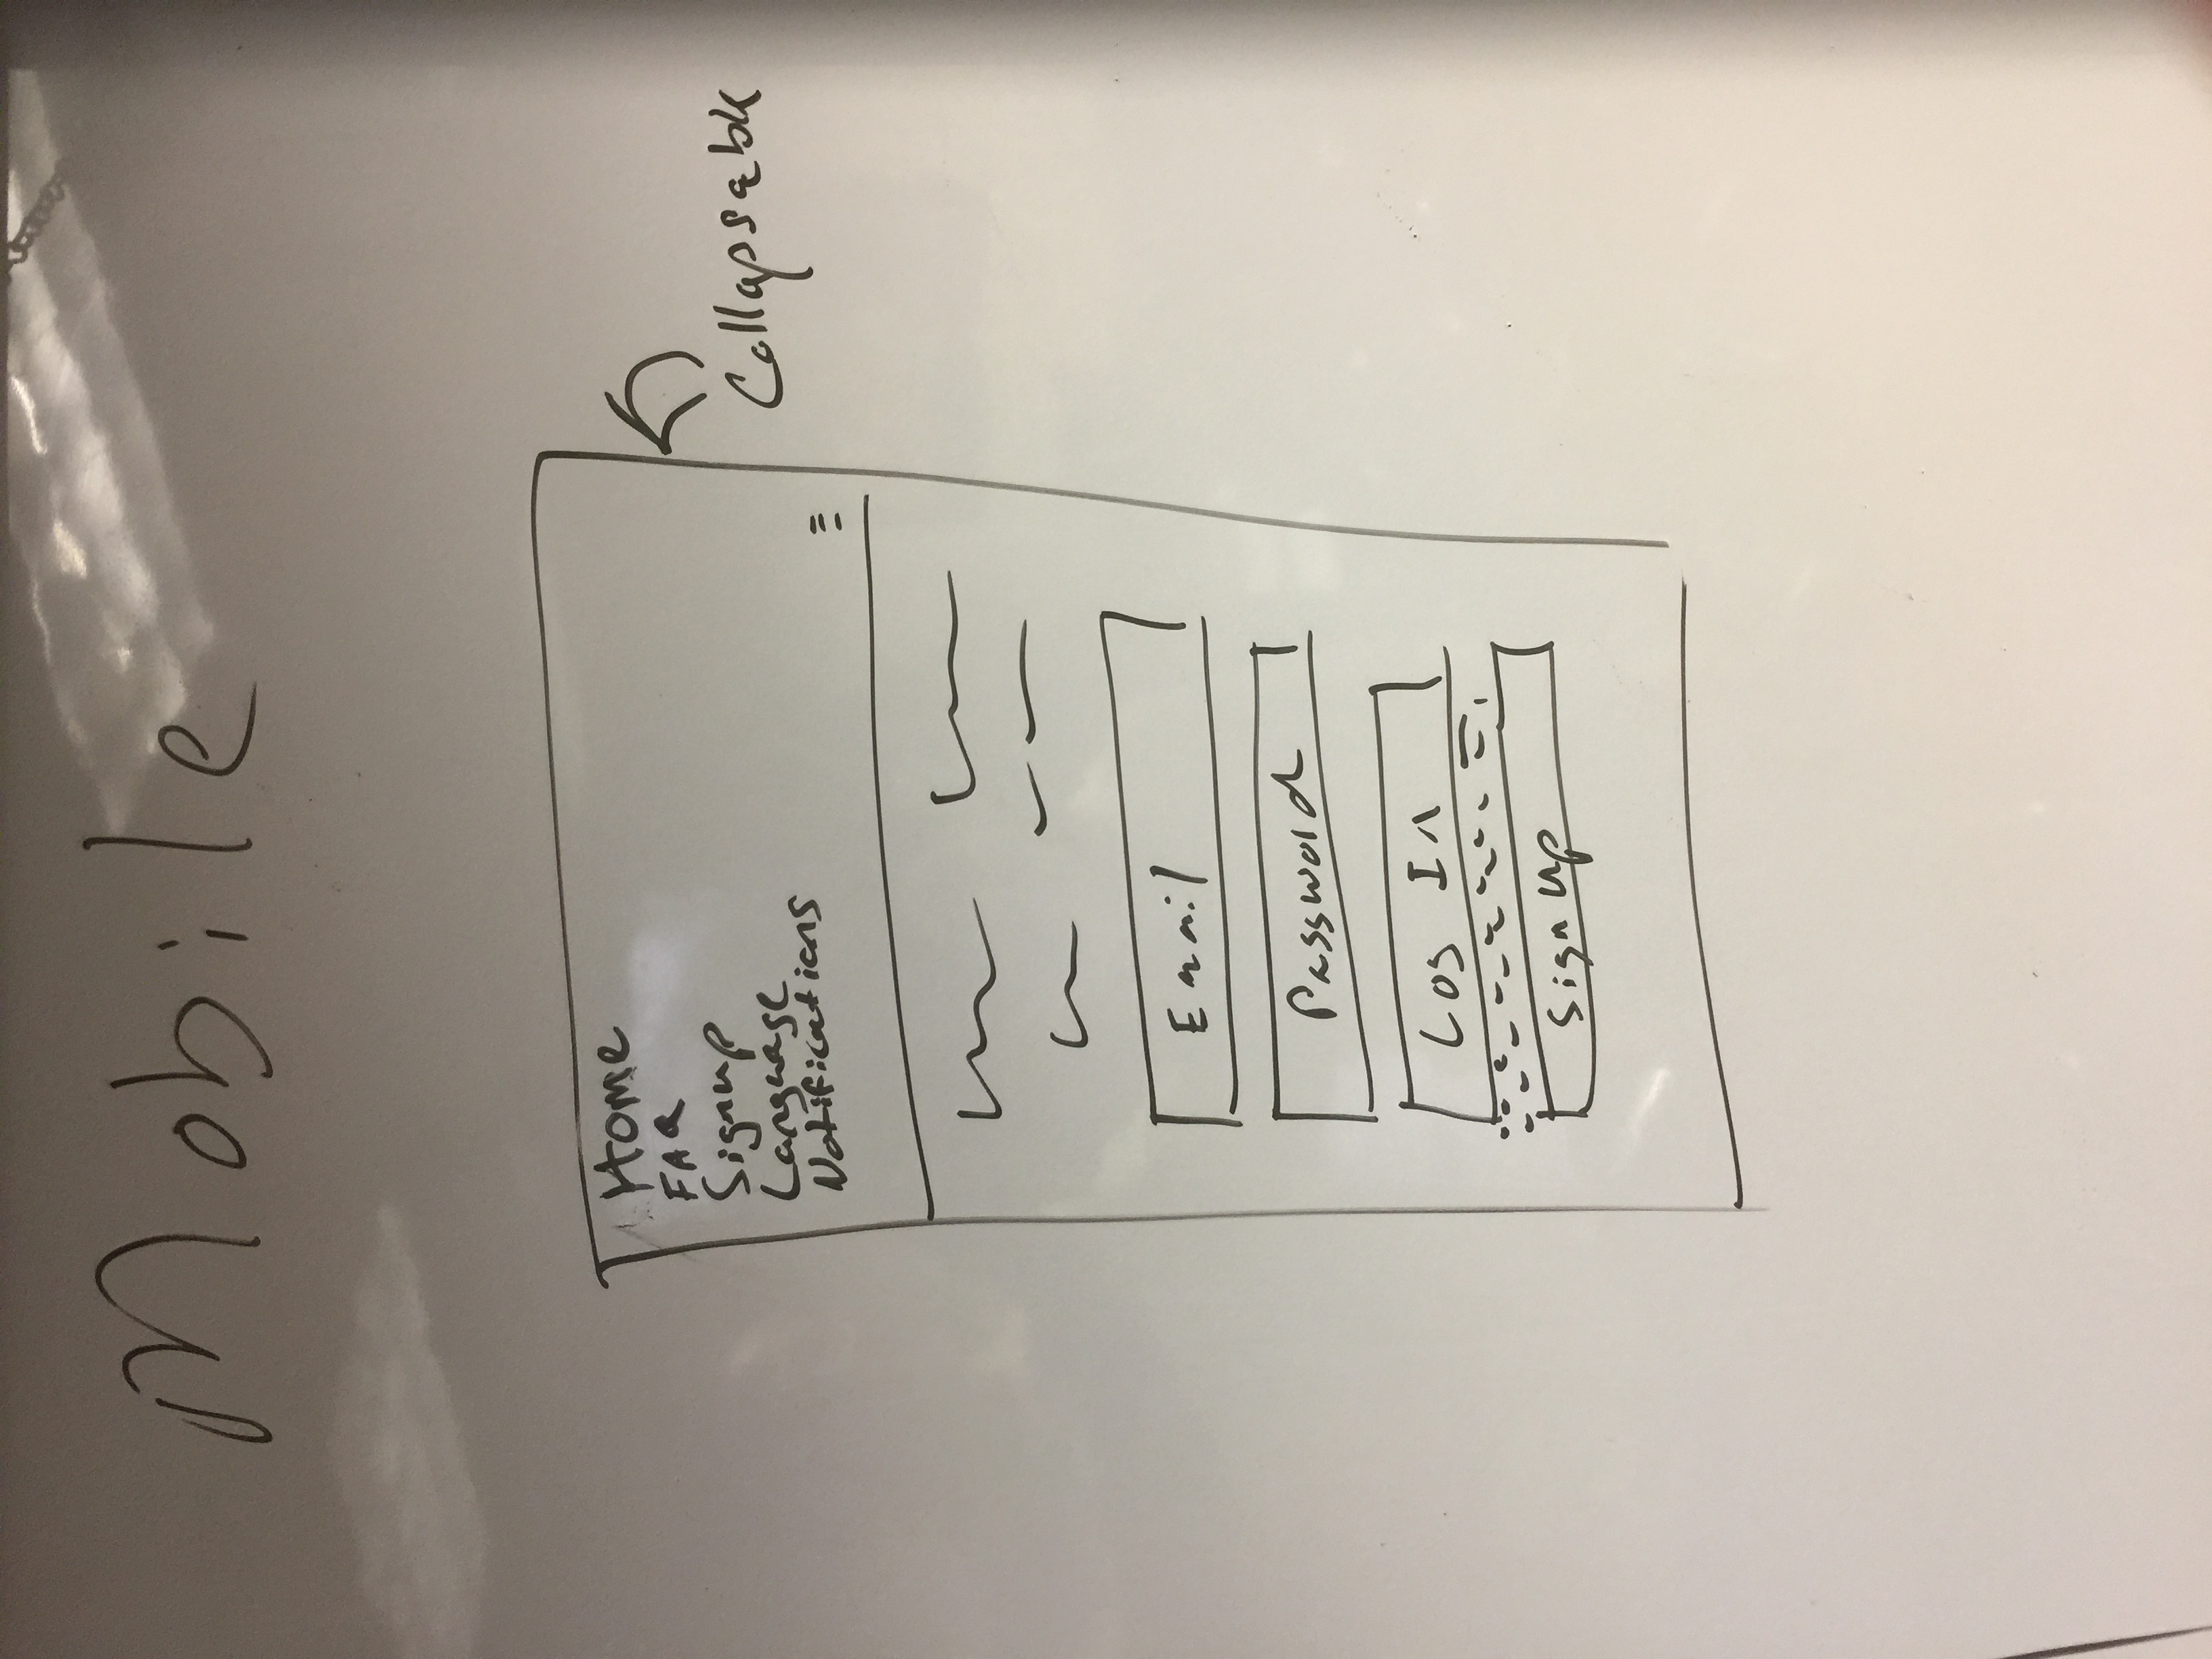 Mobile
Home
FAQ
Signup
Language
Notifications
Collapsable
Email
Password
Log In
Sign Up